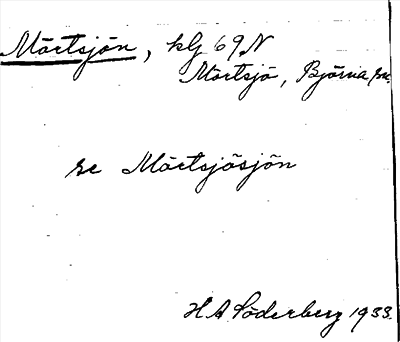 Mörtsjön, klj 69 N
Mörtsjö, Björna sn.
se Mörtsjösjön
H A Söderberg 1933.